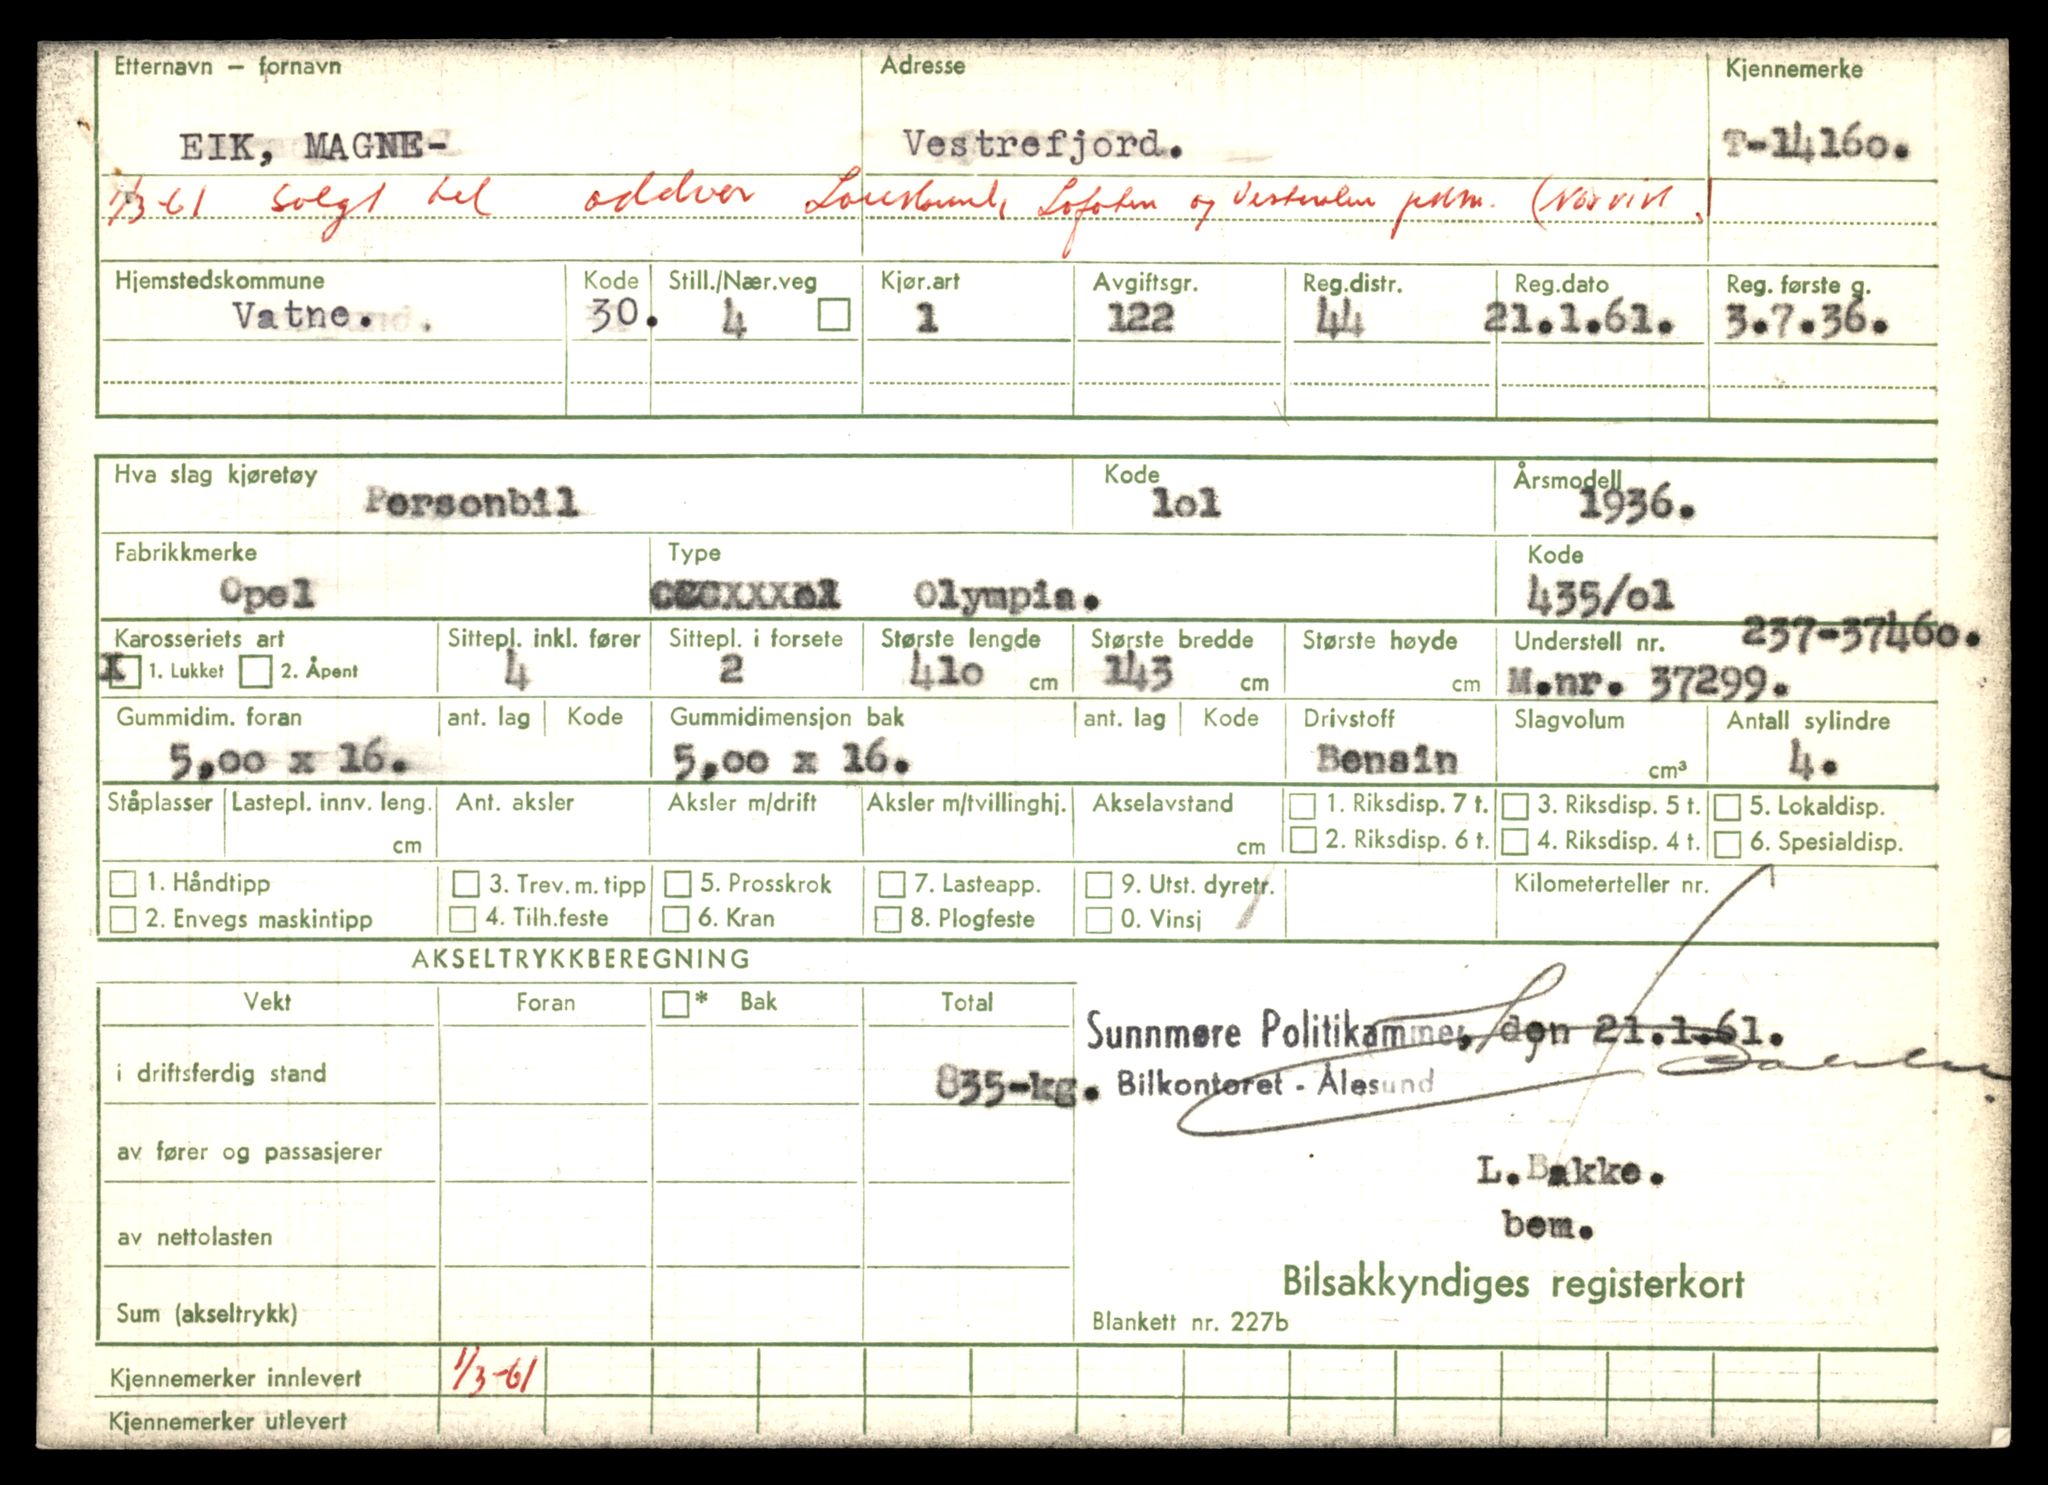 Etternavn – fornavn Adresse Kjennemerke
EIK, MAGNE- Vestrefjord. T-1416o.
1/3-61 solgt til oddvar Lofoten og Vesterålen pdm. (Narvik.)
Hjemstedskommune Kode Still./Nær.veg Kjør.art Avgiftsgr. Reg.distr. Reg.dato Reg. første g.
Vatne. 30. 4 1 122 44 21.1.61. 3.7.36.
Hva slag kjøretøy Kode Årsmodell
Personbil lol 1936.
Fabrikkmerke Type Kode
Opel Olympia. 435/ol
237-3746o.
Karosseriets art Sittepl. inkl. fører Sittepl. i forsete Største lengde Største bredde Største høyde Understell nr.
X 1. Lukket 2. Åpent 4 2 41o cm 143 cm cm M.nr. 37299.
Gummidim. foran ant. lag Kode Gummidimensjon bak ant. lag Kode Drivstoff Slagvolum Antall sylindre
5,oo x 16. 5,oo x 16. Bensin cm³ 4.
Ståplasser Lastepl. innv. leng. Ant. aksler Aksler m/drift Aksler m/tvillinghj. Akselavstand 1. Riksdisp. 7 t. 3. Riksdisp. 5 t. 5. Lokaldisp.
cm cm 2. Riksdisp. 6 t. 4. Riksdisp. 4 t. 6. Spesialdisp.
1. Håndtipp 3. Trev. m. tipp 5. Prosskrok 7. Lasteapp. 9. Utst. dyretr. Kilometerteller nr.
2. Envegs maskintipp 4. Tilh.feste 6. Kran 8. Plogfeste 0. Vinsj
AKSELTRYKKBEREGNING
Vekt Foran * Bak Total
Sunnmøre Politikammer, den 21.1.61.
i driftsferdig stand 835-kg. Bilkontoret - Ålesund
av fører og passasjerer
L.Bakke.
bem.
av nettolasten
Bilsakkyndiges registerkort
Sum (akseltrykk) Blankett nr. 227b
Kjennemerker innlevert 1/3-61
Kjennemerker utlevert